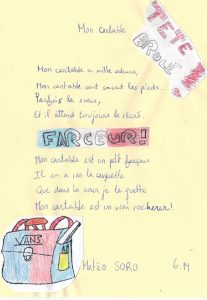 Mon cartable
TETE
BRULÉ !!!
Mon cartable a mille odeurs,
Mon cartable sent souvent les pieds.
Parfois la sueur,
Et il attend toujours la récré.
FARCEUR!
Mon cartable est un petit farceur
Il en a ras la casquette
Que dans la cour je le guette
Mon cartable est un vrai rockeur!
VANS
Matéo SORO 6.M